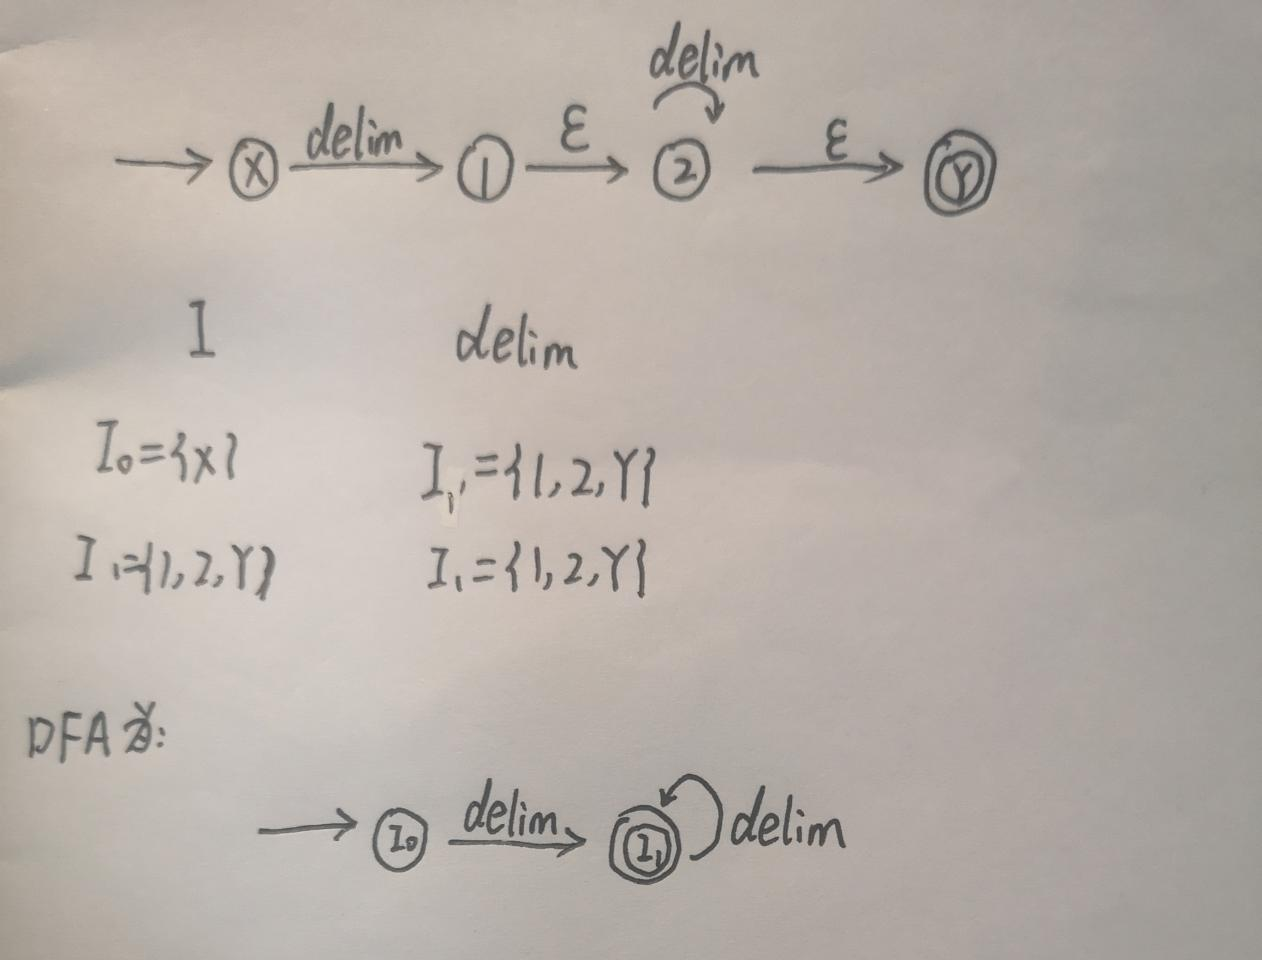 delim
X delim 1 ε 2 ε Y
I delim
I₀={X} I₁={1,2,Y}
I₁={1,2,Y} I₁={1,2,Y}
DFA为:
I₀ delim I₁ delim